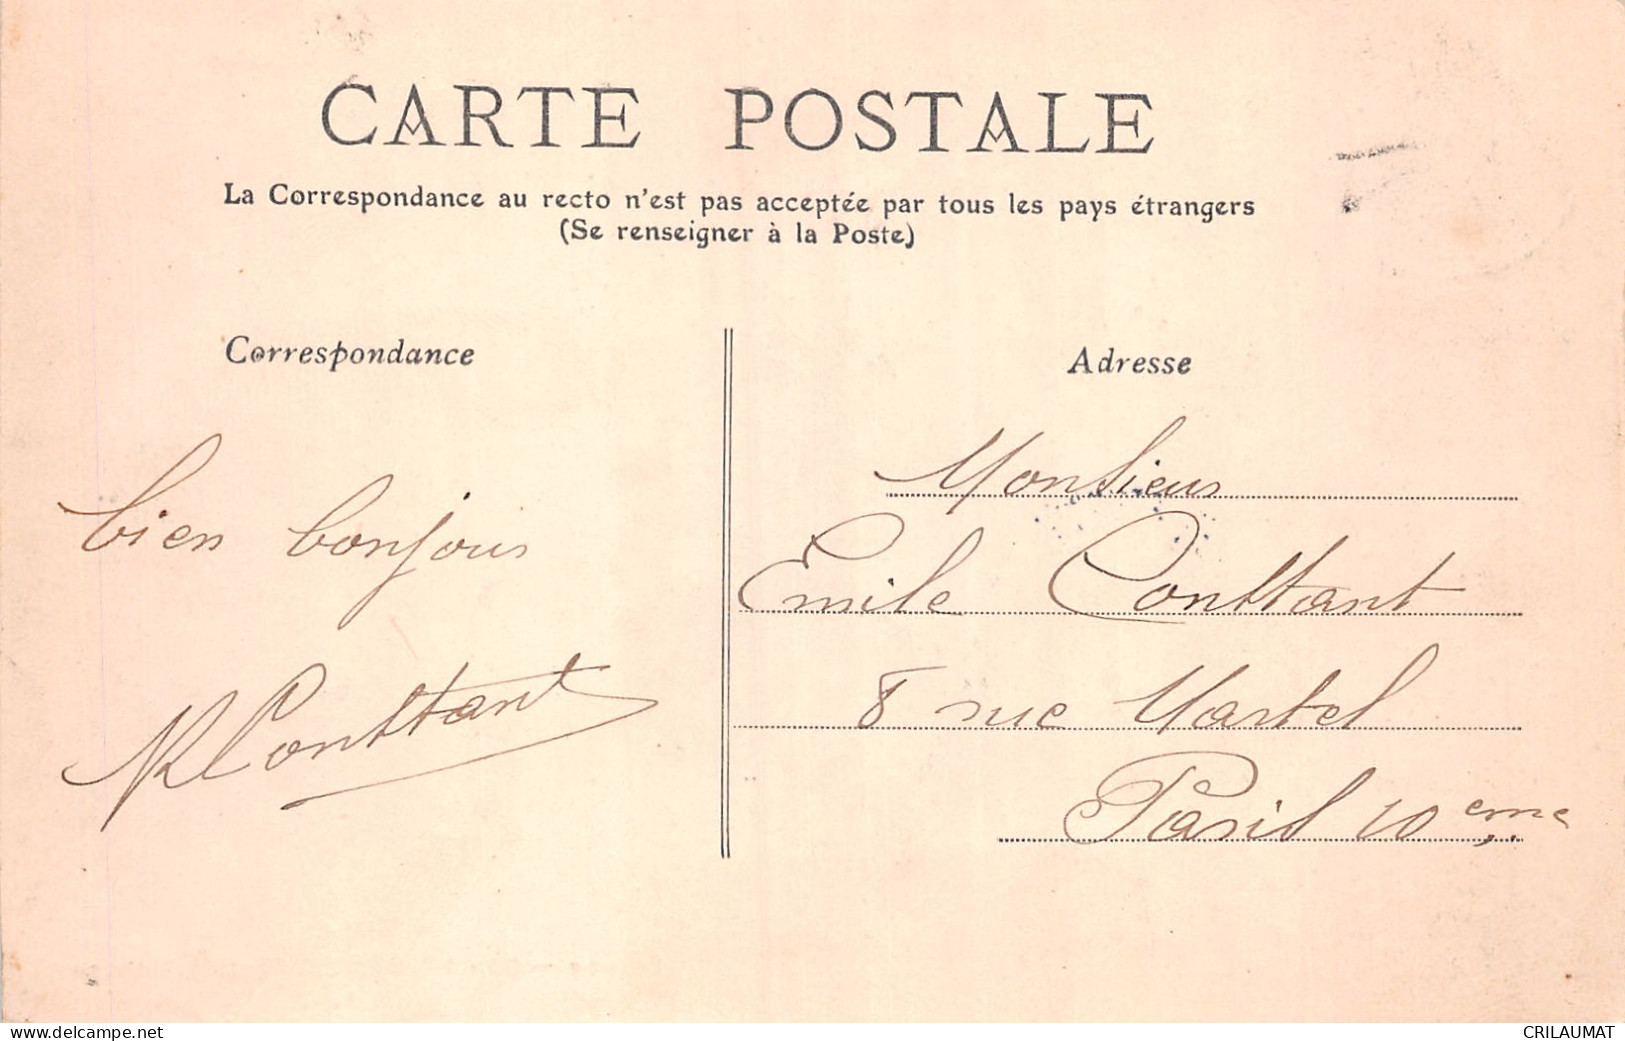 CARTE POSTALE
La Correspondance au recto n'est pas acceptée par tous les pays étrangers
(Se renseigner à la Poste)
Correspondance
bien bonjour
Conttant
Adresse
Monsieur
Emile Conttant
8 rue Martel
Paris 10eme
www.delcampe.net
CRILAUMAT